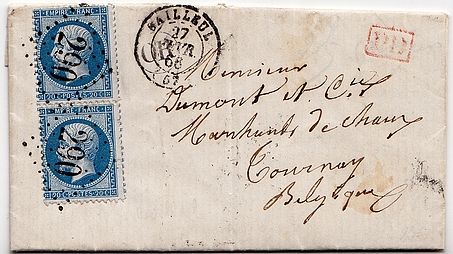 EMPIRE FRANC
290
20 C POSTES 20 C
EMPIRE FRANC
290
20 C POSTES 20 C
BAILLEUL
27
FEVR.
68
P.D.
Monsieur
Dumont et Cie
Marchants de chaux
Tournay
Belgique